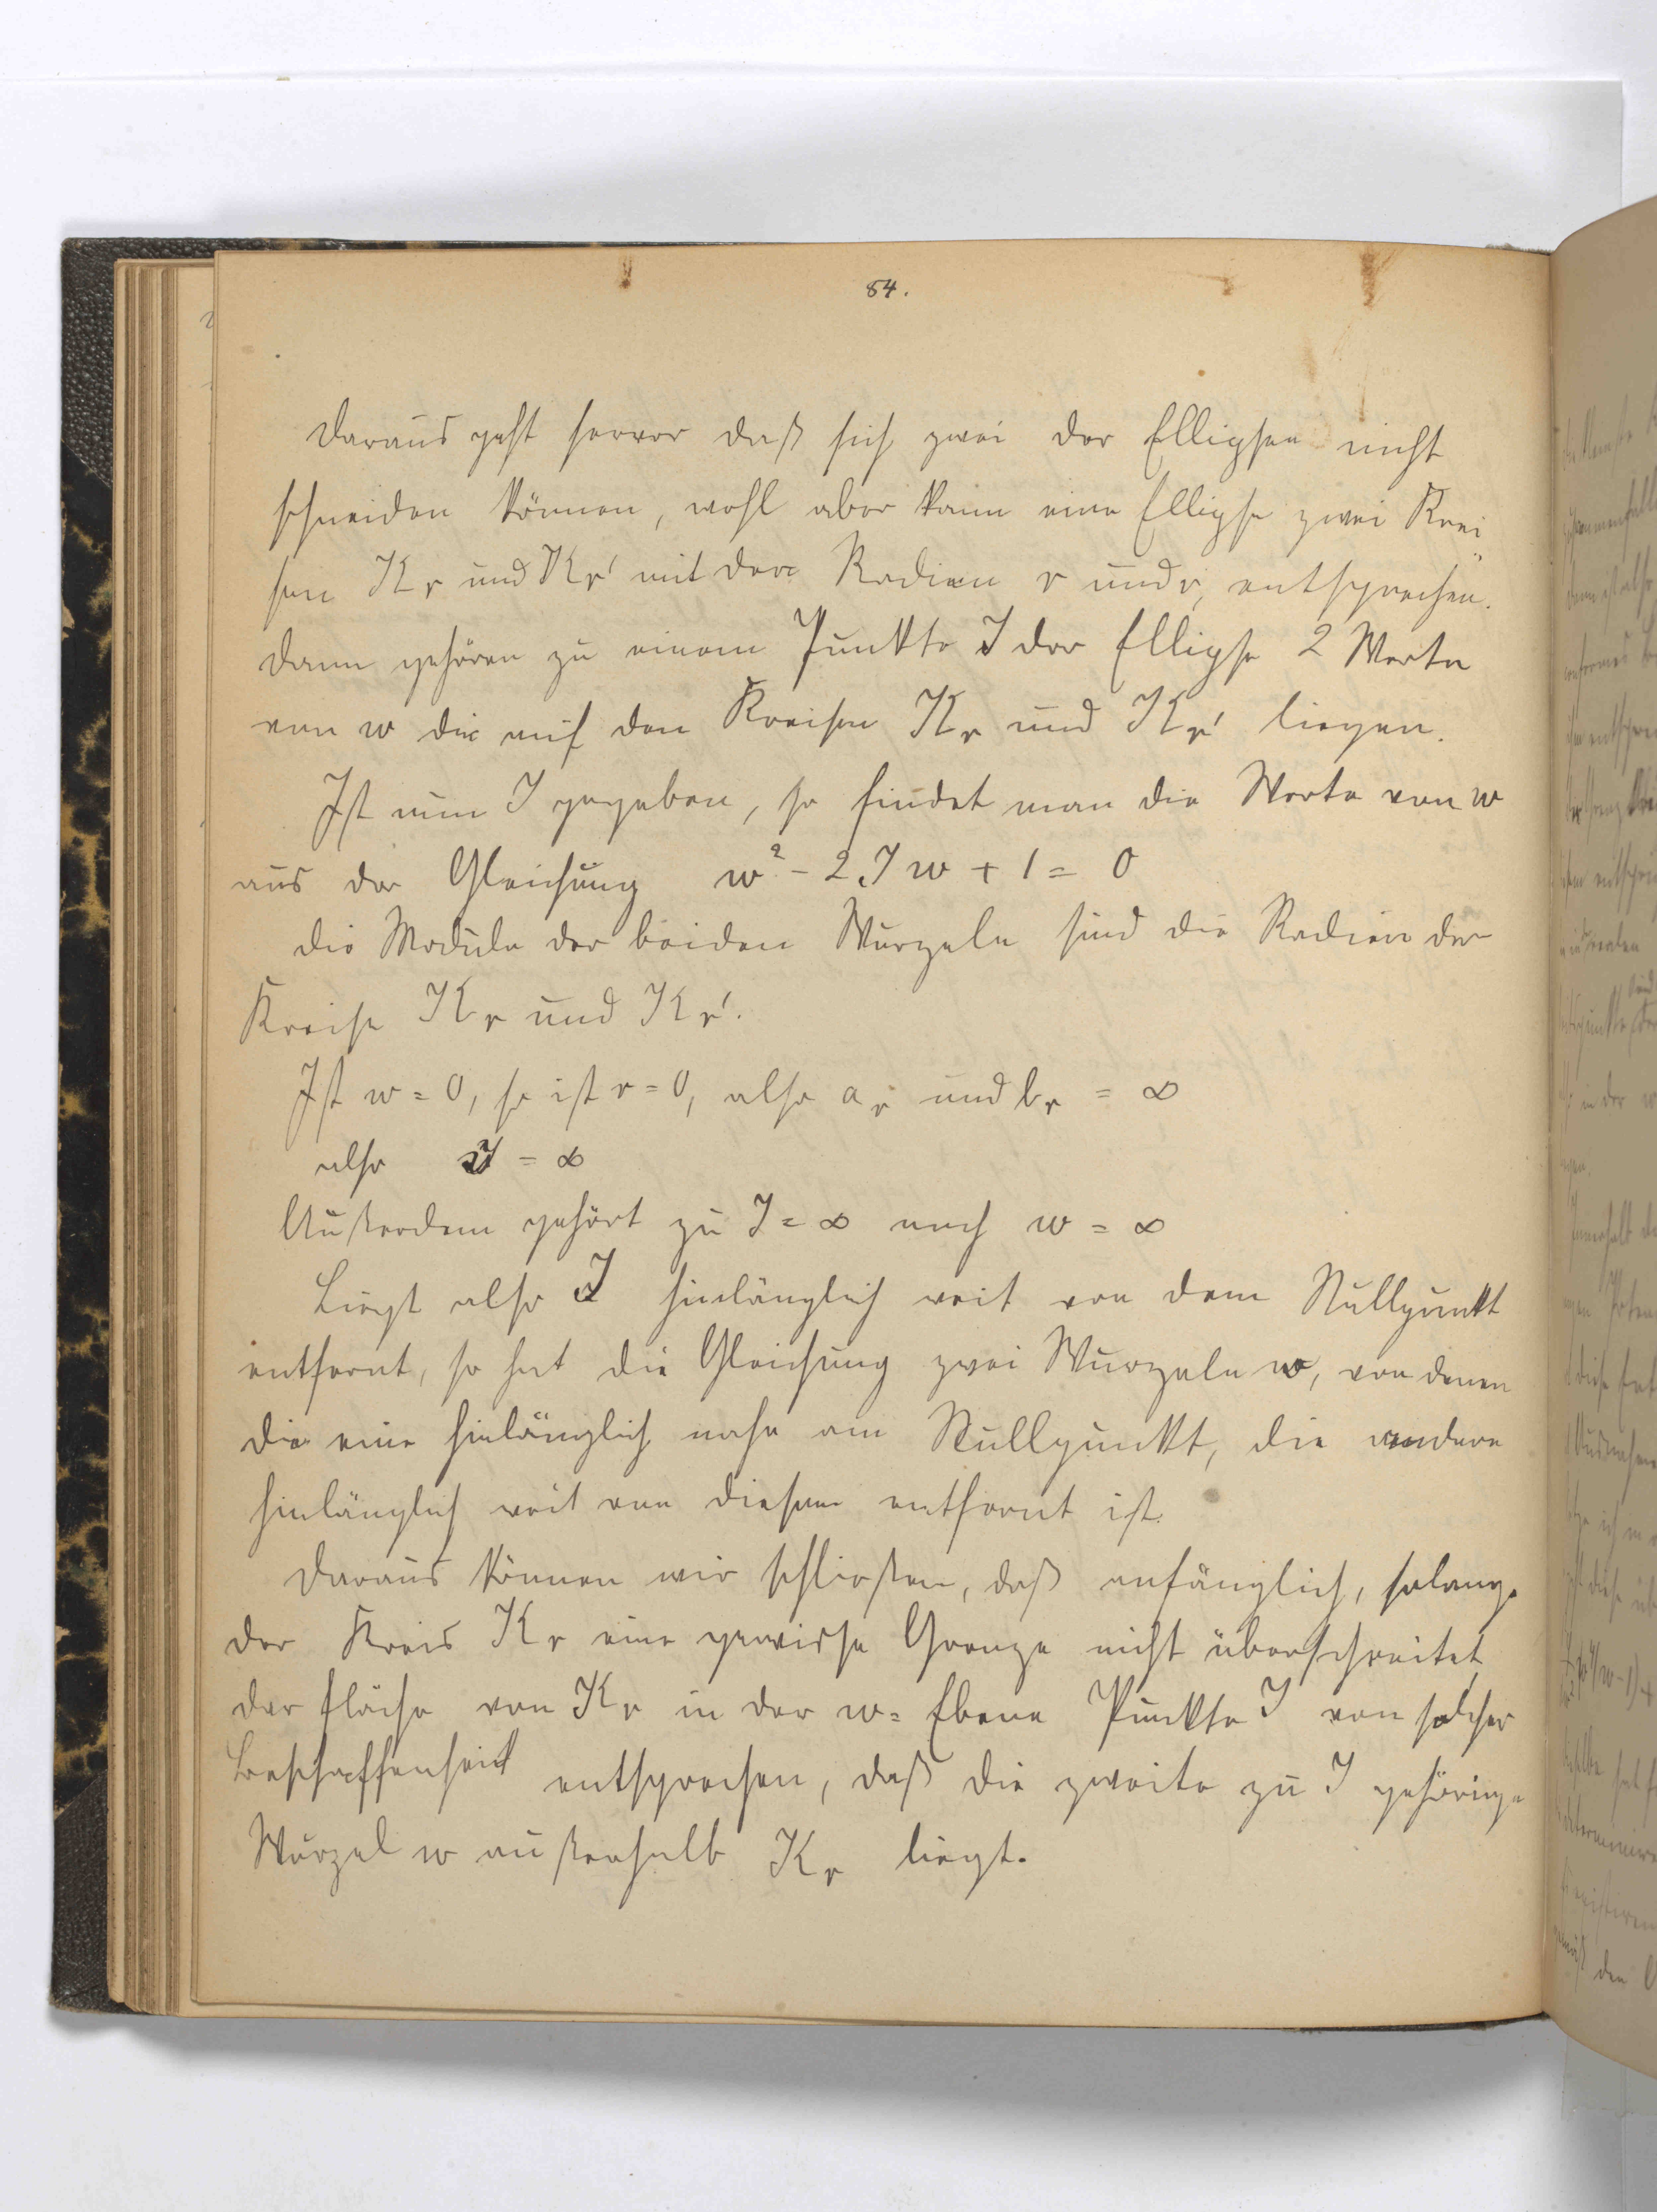 84.
Daraus geht hervor daß sich zwei der Ellipsen nicht
schneiden können, wohl aber kann eine Ellipse zwei Krei
sen Kr und Kr' mit den Radien r und r, entsprechen.
Dann gehören zu einem Punkte J der Ellipse 2 Werte
von w die auf den Kreisen Kr und Kr' liegen.
Ist nun J gegeben, so findet man die Werte von w
aus der Gleichung w² - 2Jw + 1 = 0
die Moduln der beiden Wurzeln sind die Radien der
Kreise Kr und Kr'.
Ist w = 0, so ist r = 0, also ar und br = ∞
also J = ∞
Außerdem gehört zu J = ∞ noch w = ∞
Liegt also J hinlänglich weit von dem Nullpunkt
entfernt, so hat die Gleichung zwei Wurzeln w, von denen
die eine hinlänglich nahe am Nullpunkt, die andere
hinlänglich weit von diesem entfernt ist.
Daraus können wir schließen, daß anfänglich, solange
der Kreis Kr eine gewisse Grenze nicht überschreitet,
der Fläche von Kr in der w=Ebene Punkte J von solcher
Beschaffenheit entsprechen, daß die zweite zu J gehörige
Wurzel w außerhalb Kr liegt.